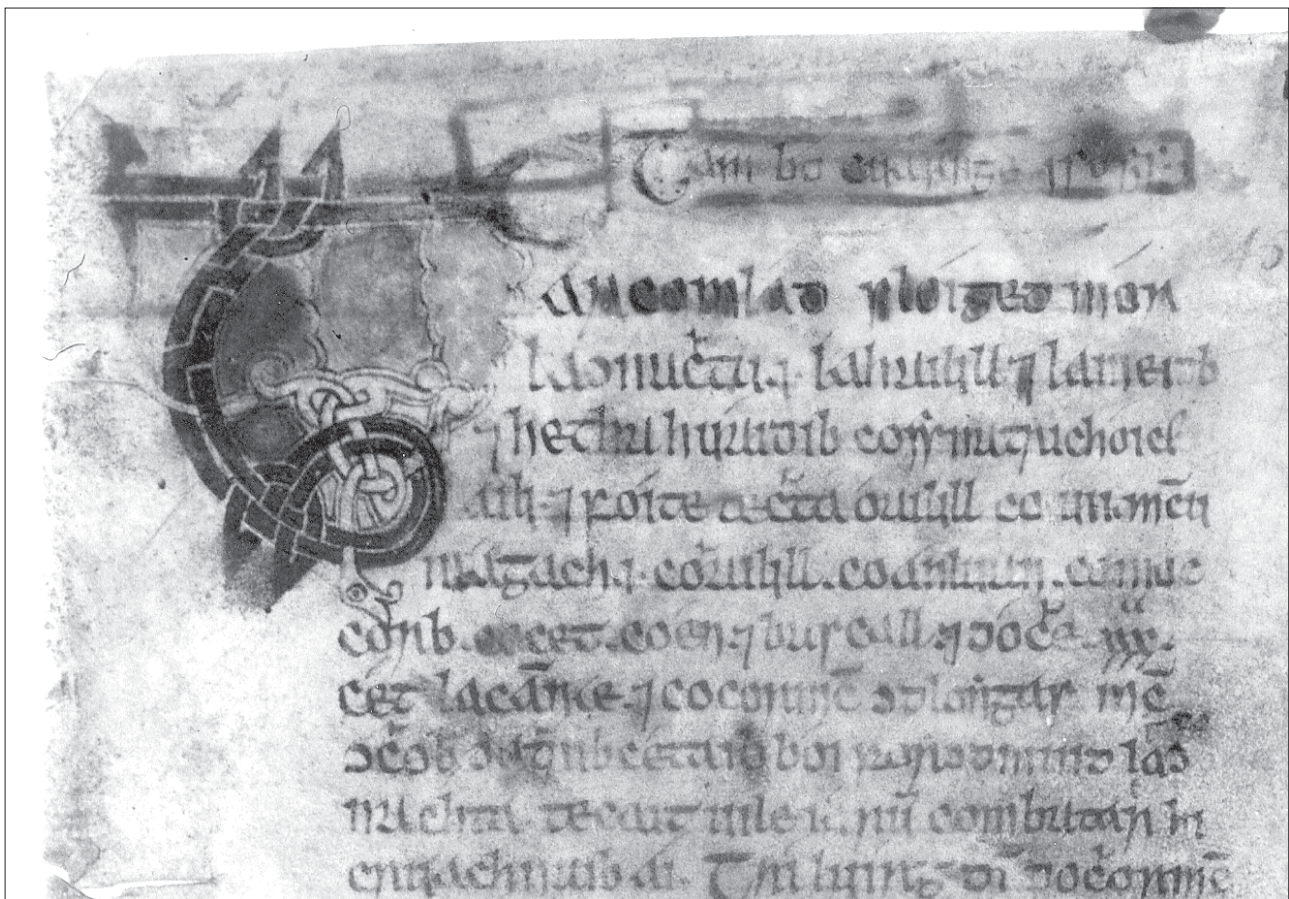 Tain bo cuailnge inso sis
Tarcomlad sloiged mór
la connachtu .i. la hailill ⁊ la meidb
⁊ hetha huaidib cossna tri chóiced
aili. ⁊ foite techta o ailill co .uii. maccu
magach .i. co ailill. co anluan. co mac
corb. co cet. co en ⁊ bascall ⁊ doche .xxx.
cet la cach nae ⁊ co cormac cond longas mac
conchobair cona thrib cetaib boi for a foindiud la con
nachta. Tecait uile iarum combatar hi
cruachnaib ai. Tri lurig do chormac